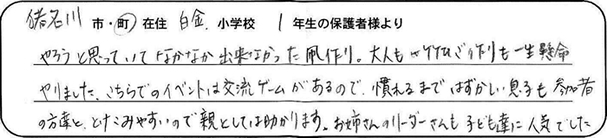 猪名川 市・町 在住 白金 小学校 1 年生の保護者様より
やろうと思っていてなかなか出来なかった凧作り。大人も竹ひご作りも一生懸命
やりました。こちらでのイベントは交流ゲームがあるので、慣れるまではずかしい息子も参加者
の方達と、とけこみやすいので親としては助かります。お姉さんのリーダーさんも子ども達に人気でした